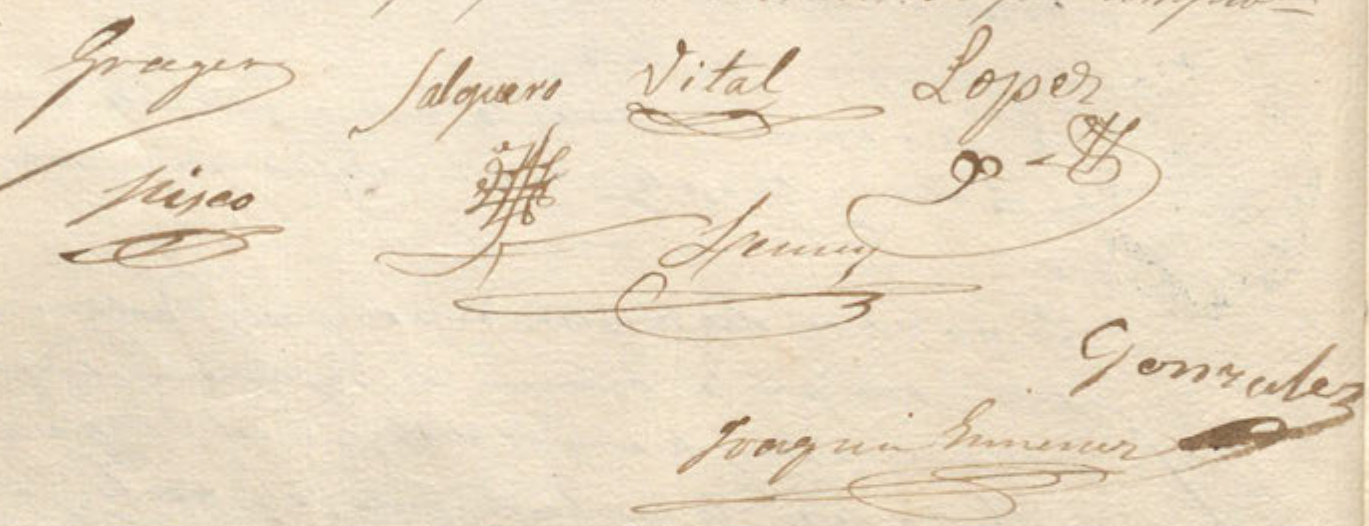 Gragera Salguero Vital Lopez
Pisco
Gonzalez
Joaquin Gimenez